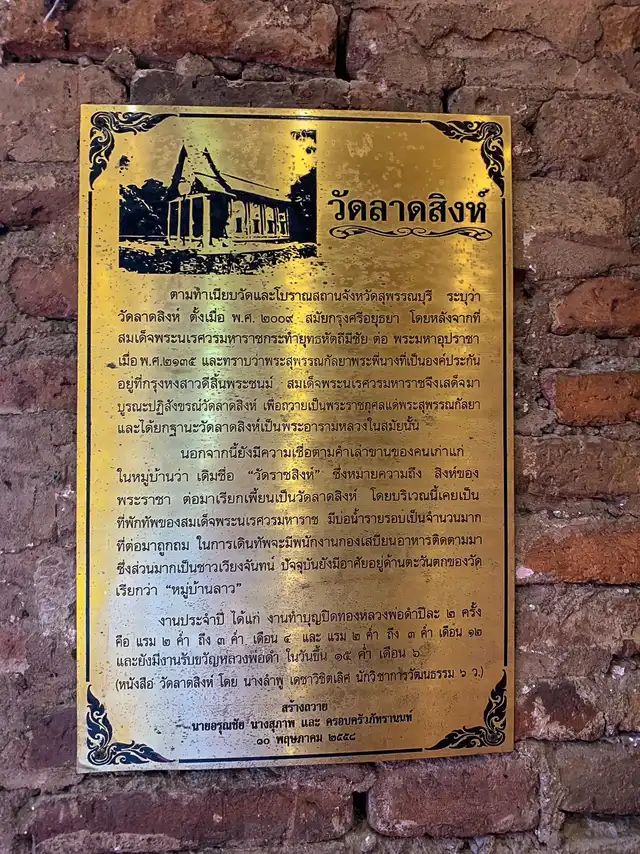 วัดลาดสิงห์
ตามทำเนียบวัดและโบราณสถานจังหวัดสุพรรณบุรี ระบุว่า
วัดลาดสิงห์ ตั้งเมื่อ พ.ศ. ๒๐๐๙ สมัยกรุงศรีอยุธยา โดยหลังจากที่
สมเด็จพระนเรศวรมหาราชกระทำยุทธหัตถีมีชัย ต่อ พระมหาอุปราชา
เมื่อ พ.ศ.๒๑๓๕ และทราบว่าพระสุพรรณกัลยาพระพี่นางที่เป็นองค์ประกัน
อยู่ที่กรุงหงสาวดีสิ้นพระชนม์ สมเด็จพระนเรศวรมหาราชจึงเสด็จมา
บูรณะปฏิสังขรณ์วัดลาดสิงห์ เพื่อถวายเป็นพระราชกุศลแด่พระสุพรรณกัลยา
และได้ยกฐานะวัดลาดสิงห์เป็นพระอารามหลวงในสมัยนั้น
นอกจากนี้ยังมีความเชื่อตามคำเล่าขานของคนเก่าแก่
ในหมู่บ้านว่า เดิมชื่อ "วัดราชสิงห์" ซึ่งหมายความถึง สิงห์ของ
พระราชา ต่อมาเรียกเพี้ยนเป็นวัดลาดสิงห์ โดยบริเวณนี้เคยเป็น
ที่พักทัพของสมเด็จพระนเรศวรมหาราช มีบ่อน้ำรายรอบเป็นจำนวนมาก
ที่ต่อมาถูกถม ในการเดินทัพจะมีพนักงานกองเสบียนอาหารติดตามมา
ซึ่งส่วนมากเป็นชาวเวียงจันทน์ ปัจจุบันยังมีอาศัยอยู่ด้านตะวันตกของวัด
เรียกว่า "หมู่บ้านลาว"
งานประจำปี ได้แก่ งานทำบุญปิดทองหลวงพ่อดำปีละ ๒ ครั้ง
คือ แรม ๒ ค่ำ ถึง ๓ ค่ำ เดือน ๔ และ แรม ๒ ค่ำ ถึง ๓ ค่ำ เดือน ๑๒
และยังมีงานรับขวัญหลวงพ่อดำ ในวันขึ้น ๑๕ ค่ำ เดือน ๖
(หนังสือ วัดลาดสิงห์ โดย นางลำพู เดชาวิชิตเลิศ นักวิชาการวัฒนธรรม ๖ ว.)
สร้างถวาย
นายอรุณชัย นางสุภาพ และ ครอบครัวภัทรานนท์
๑๐ พฤษภาคม ๒๕๕๘